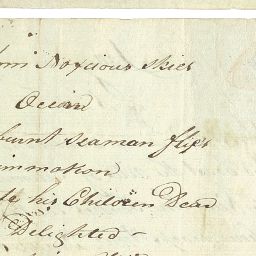 Noxious skies
Ocean
burnt seaman flies
in motion
his Children Dear
Delighted –